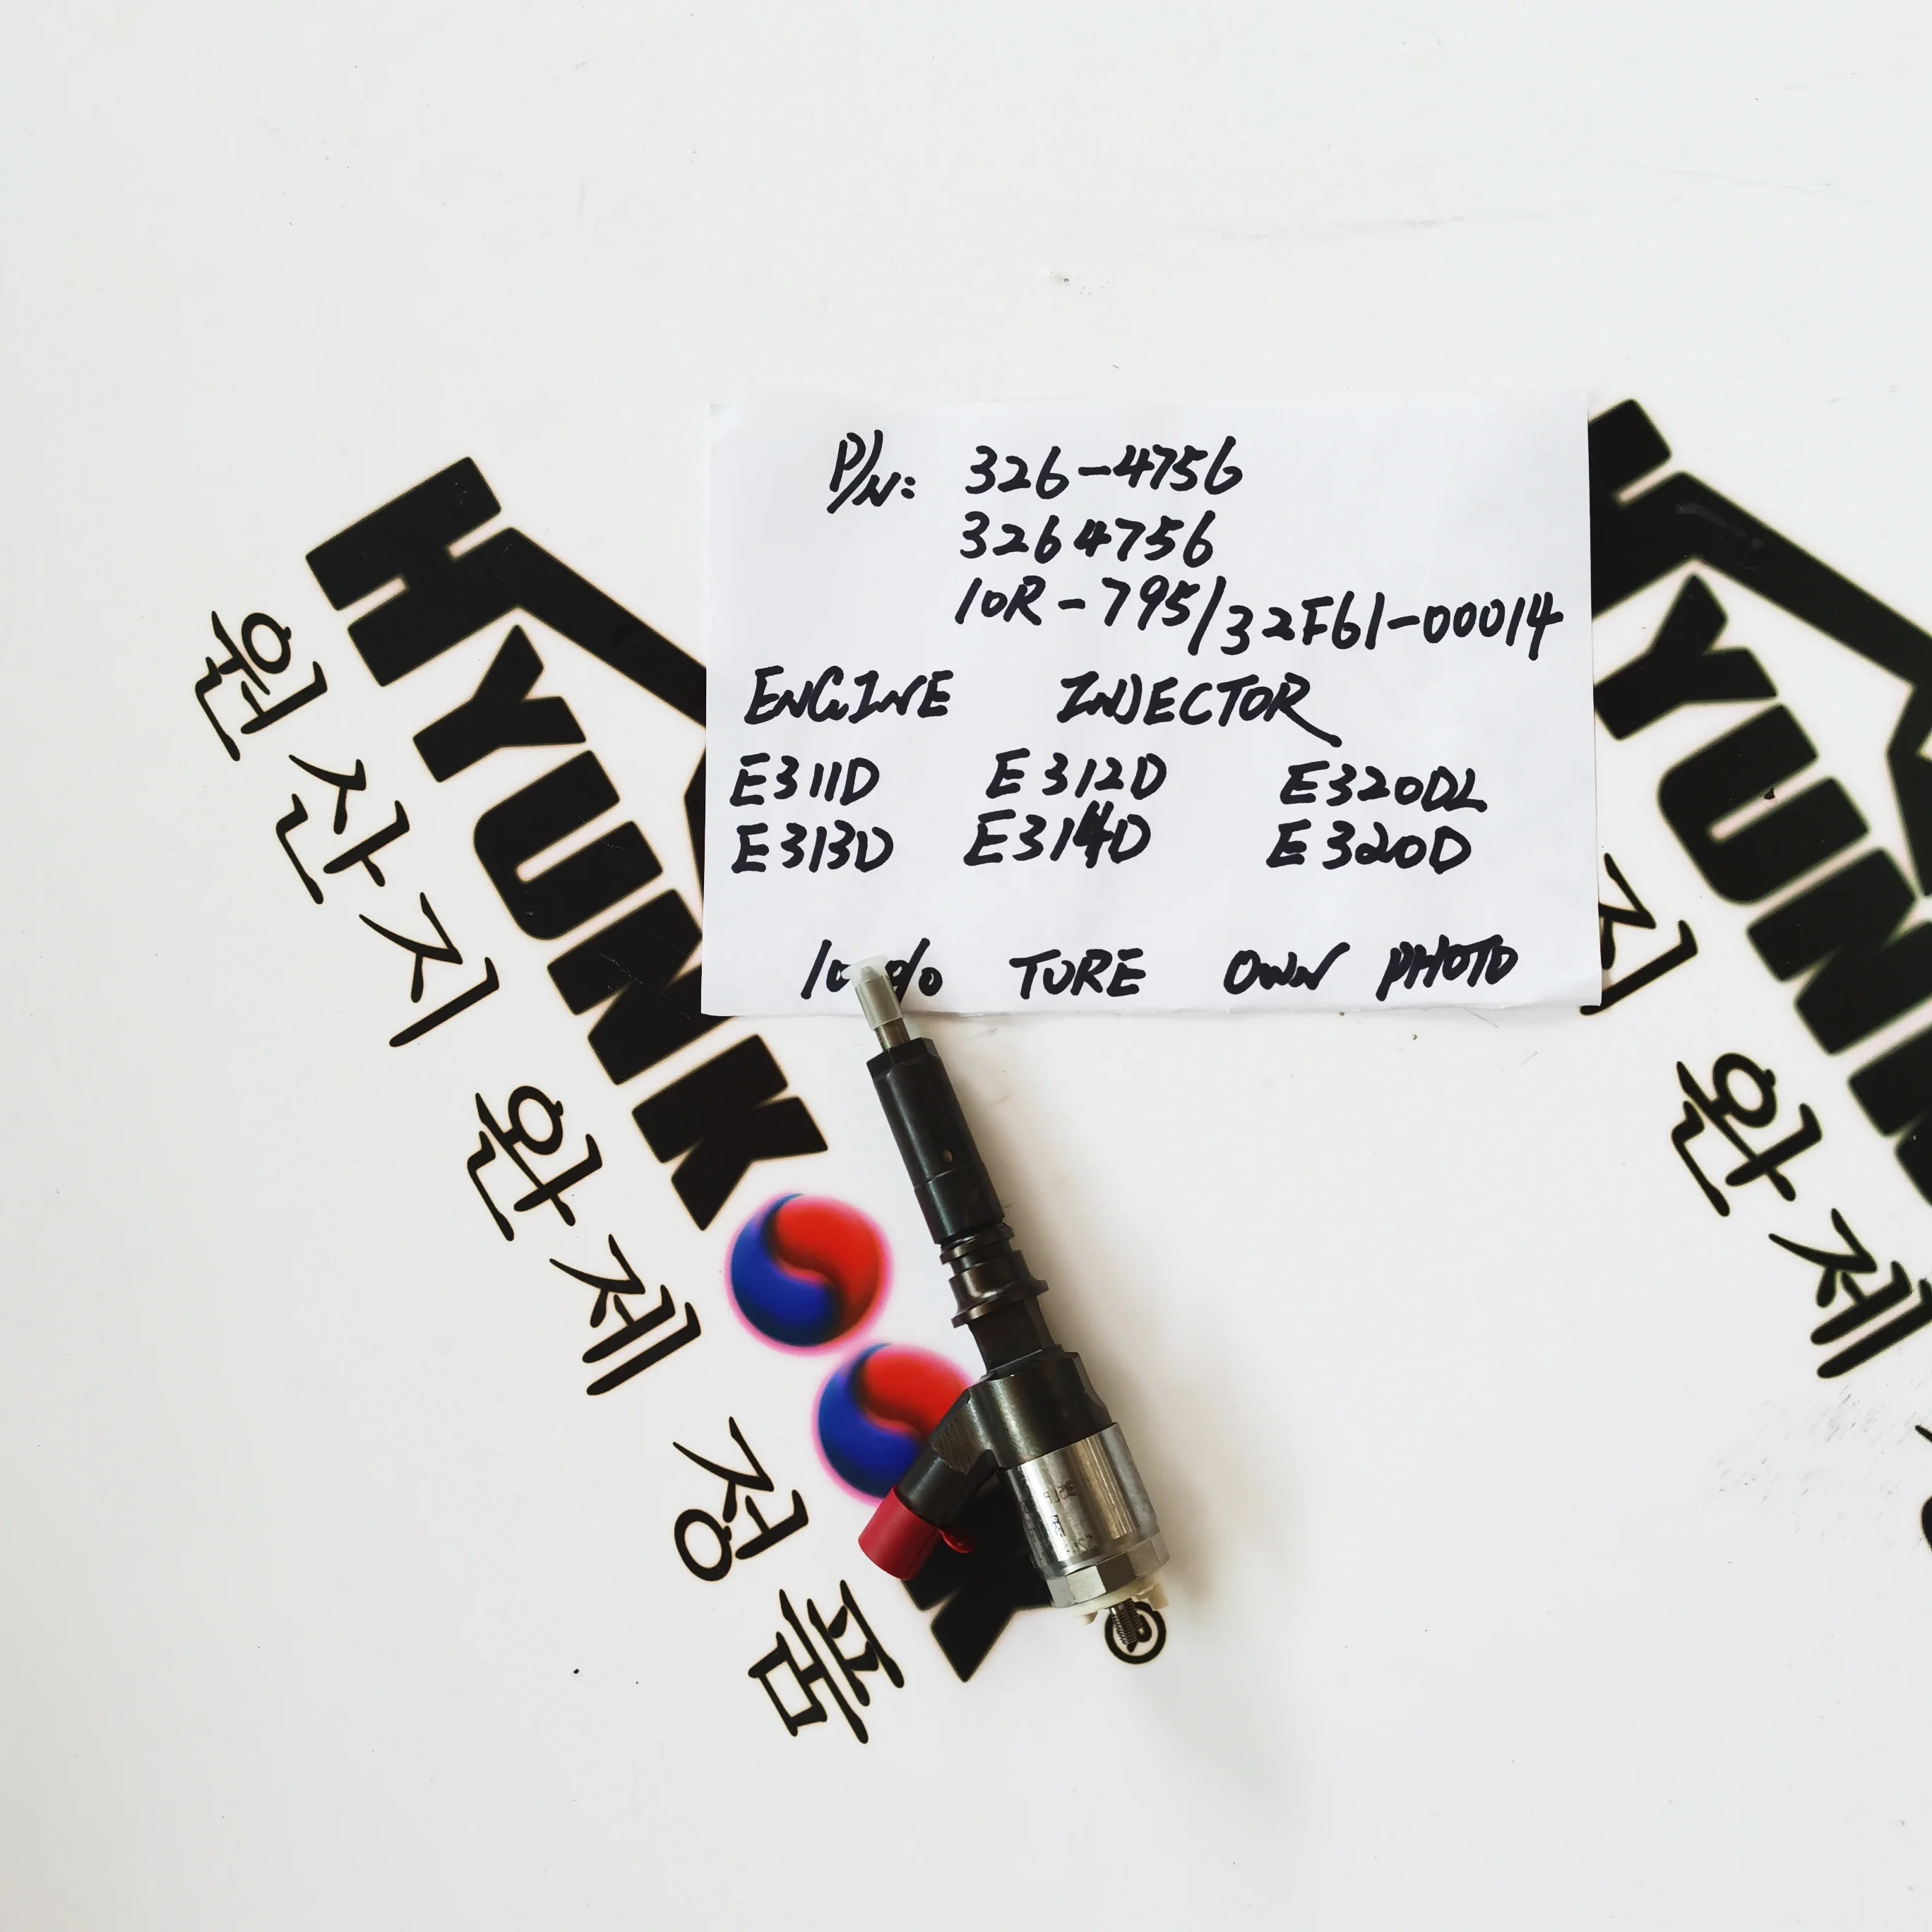 P/N: 326-4756
3264756
10R-795/32F61-00014
ENGINE INJECTOR
E311D E312D E320DL
E313D E314D E320D
TURE OWN PHOTO
HYUNK
원산지 한제 정품
®
HYUN
지 한제